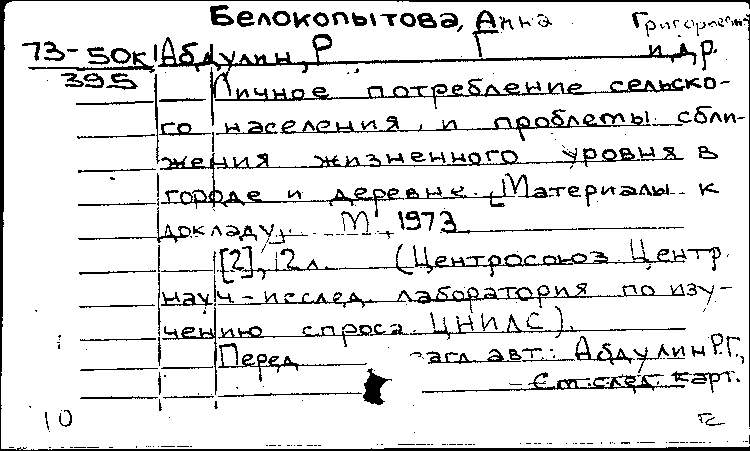 Белокопытова, Анна Григорьевна
73-50к Абдулин, Р Г и др.
395
Личное потребление сельско-
го населения и проблемы сбли-
жения жизненного уровня в
городе и деревне. [Материалы к
докладу]. М, 1973
[2], 12 л. (Центросоюз Центр.
науч-исслед. лаборатория по изу-
чению спроса. ЦНИЛС).
Перед загл. авт.: Абдулин Р.Г.,
См. след. карт.
10